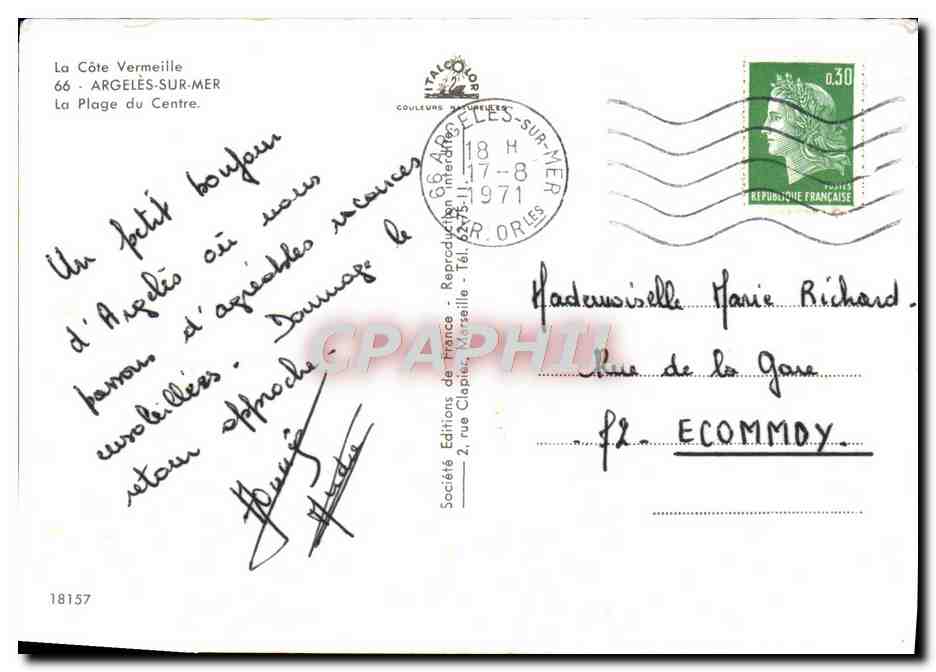 La Côte Vermeille
66 - ARGELÈS-SUR-MER
La Plage du Centre.
ITALCOLOR
COULEURS NATURELLES
Un petit bonjour
d'Argelès où nous
passons d'agréables vacances
ensoleillées. Dommage le
retour approche.
André
66 ARGELES-SUR-MER
18 H
17-8
1971
R. OR LES
0,30
POSTES
REPUBLIQUE FRANÇAISE
Société Editions de France - Reproduction interdite
2, rue Clapier, Marseille - Tél. 62-75-11
Mademoiselle Marie Richard.
Rue de la Gare
72 - ECOMMOY.
18157
CPAPHIL